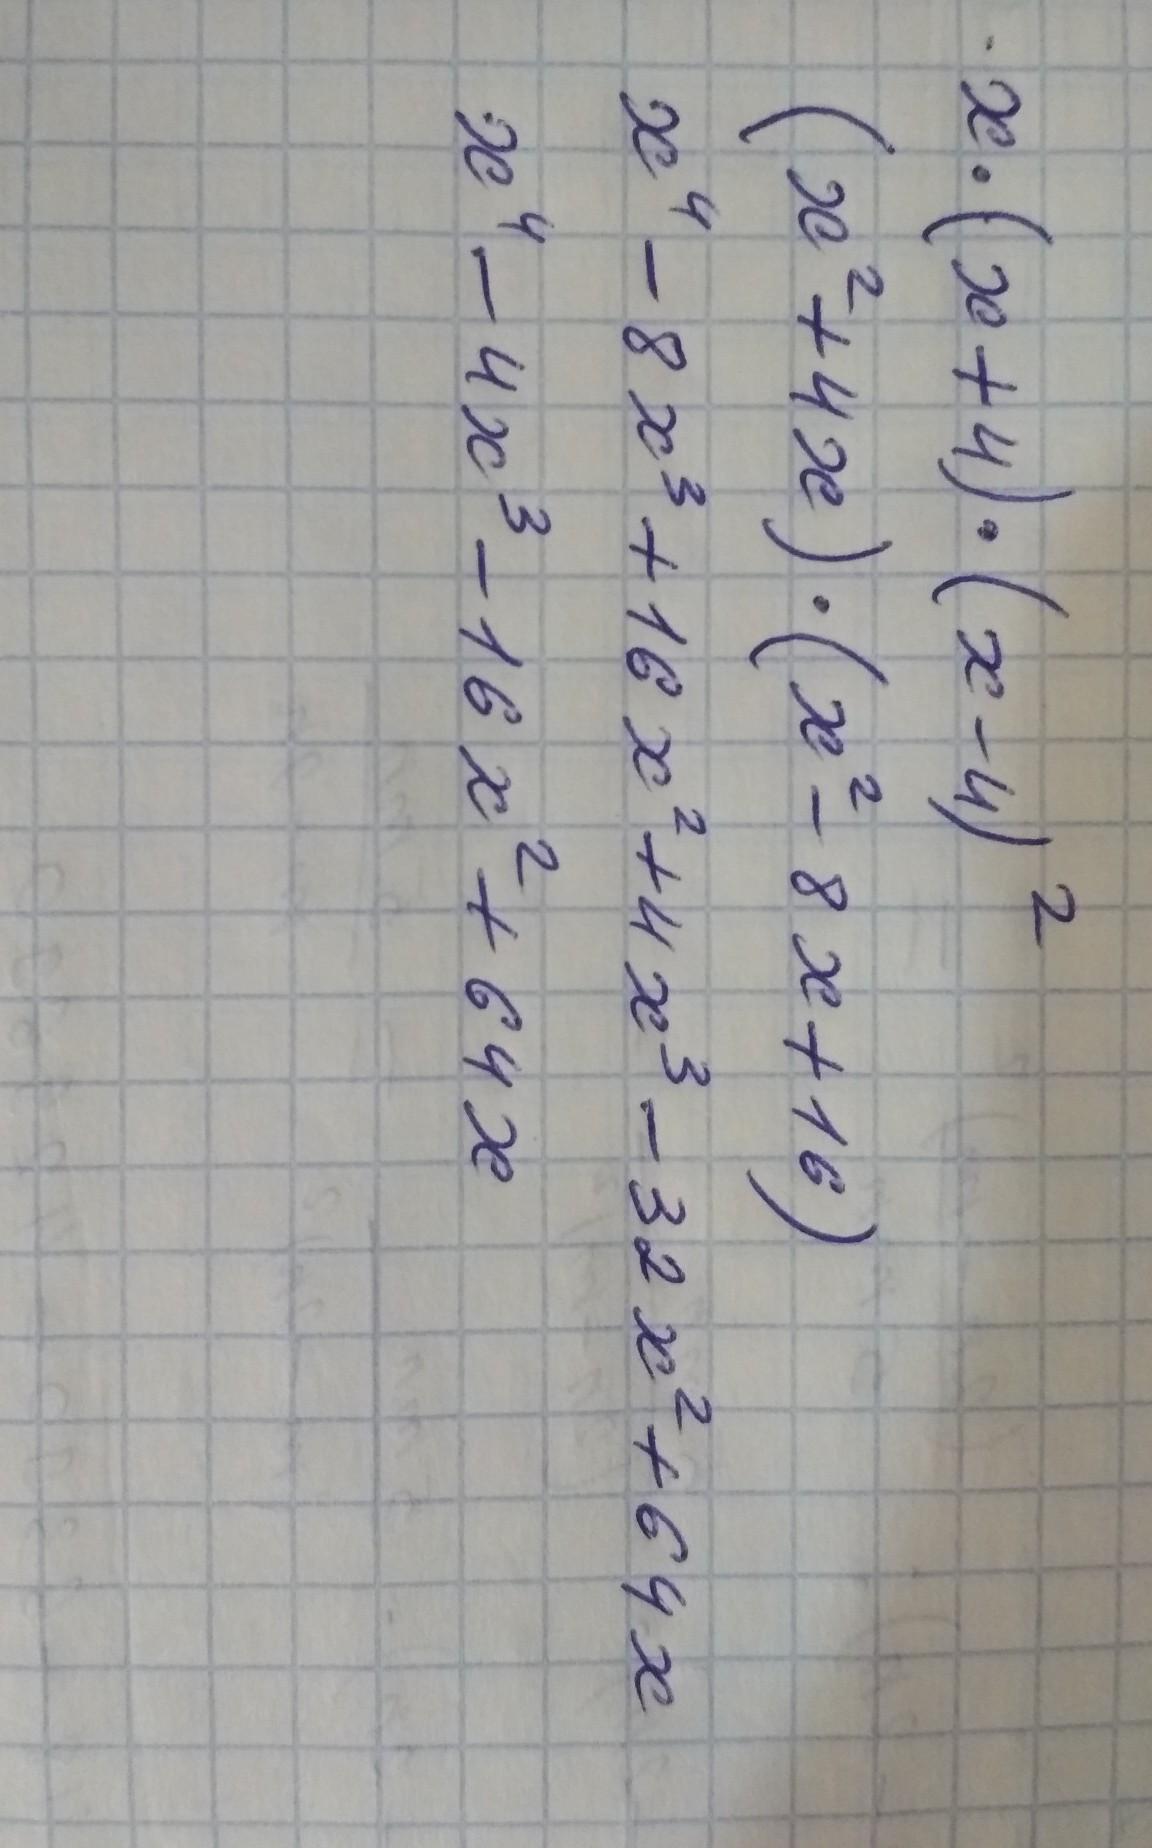 x·(x+4)·(x-4)²
(x²+4x)·(x²-8x+16)
x⁴-8x³+16x²+4x³-32x²+64x
x⁴-4x³-16x²+64x